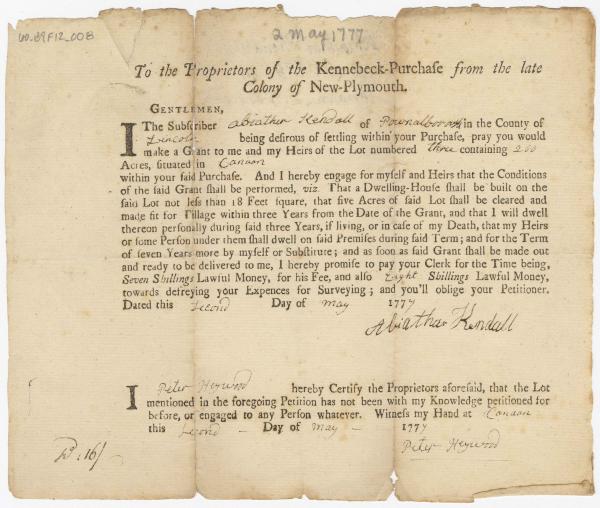 60.89F12_008
2 May 1777
To the Proprietors of the Kennebeck-Purchase from the late
Colony of New-Plymouth.
GENTLEMEN,
I The Subscriber Abiather Kendall of Pownalborough in the County of
Lincoln being desirous of settling within your Purchase, pray you would
make a Grant to me and my Heirs of the Lot numbered three containing 200
Acres, situated in Canaan
within your said Purchase. And I hereby engage for myself and Heirs that the Conditions
of the said Grant shall be performed, viz. That a Dwelling-House shall be built on the
said Lot not less than 18 Feet square, that five Acres of said Lot shall be cleared and
made fit for Tillage within three Years from the Date of the Grant, and that I will dwell
thereon personally during said three Years, if living, or in case of my Death, that my Heirs
or some Person under them shall dwell on said Premises during said Term; and for the Term
of seven Years more by myself or Substitute; and as soon as said Grant shall be made out
and ready to be delivered to me, I hereby promise to pay your Clerk for the Time being,
Seven Shillings Lawful Money, for his Fee, and also Eight Shillings Lawful Money,
towards defreying your Expences for Surveying; and you'll oblige your Petitioner.
Dated this Second Day of May 1777
Abiathar Kendall
I Peter Heywood hereby Certify the Proprietors aforesaid, that the Lot
mentioned in the foregoing Petition has not been with my Knowledge petitioned for
before, or engaged to any Person whatever. Witness my Hand at Canaan
this Second - Day of May - 1777
Peter Heywood
16/